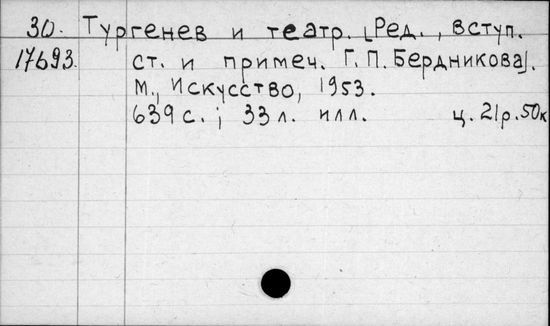 30. Тургенев и театр. [Ред., вступ.
17693. ст. и примеч. Г. П. Бердникова].
М., Искусство, 1953.
639 с.; 33 л. илл. ц. 21р.50к